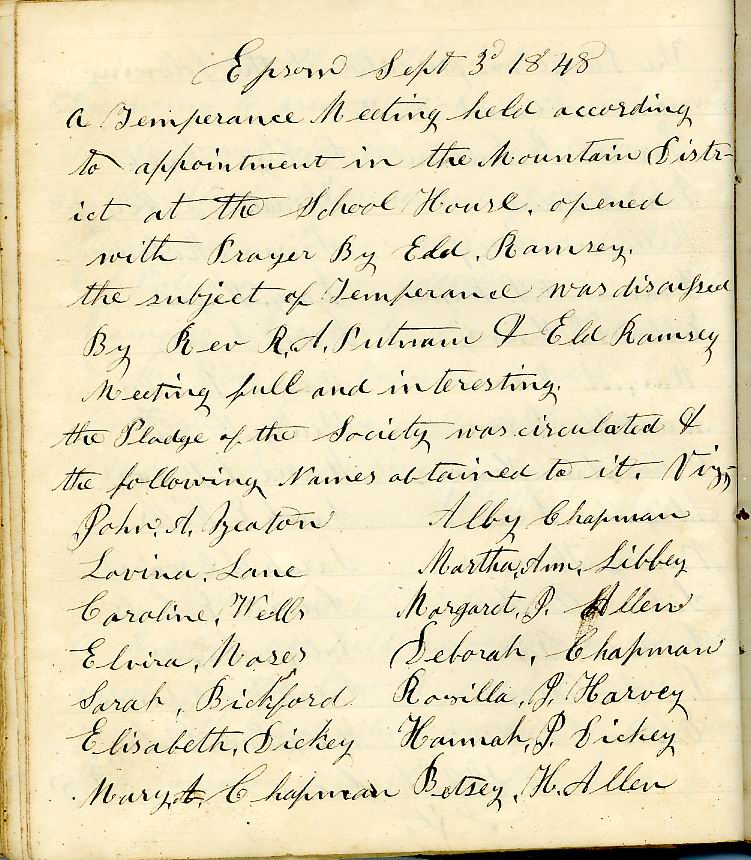 Epsom Sept 3d 1848
A Temperance Meeting held according
to appointment in the Mountain Distr-
ict at the School House. opened
with Prayer By Eld. Ramsey.
the subject of Temperance was discussed
By Rev R. A. Putnam & Eld Ramsey
Meeting full and interesting.
the Pladge of the Society was circulated &
the following Names obtained to it. Viz,
John. A. Yeaton Alby Chapman
Lovina. Lane Martha, Ann, Libbey
Caroline, Wells Margaret, J. Allen
Elvira, Moses Deborah, Chapman
Sarah, Bickford Rosilla, J, Harvey
Elisabeth, Dickey Hannah, P. Dickey
Mary, A, Chapman Betsey, H. Allen